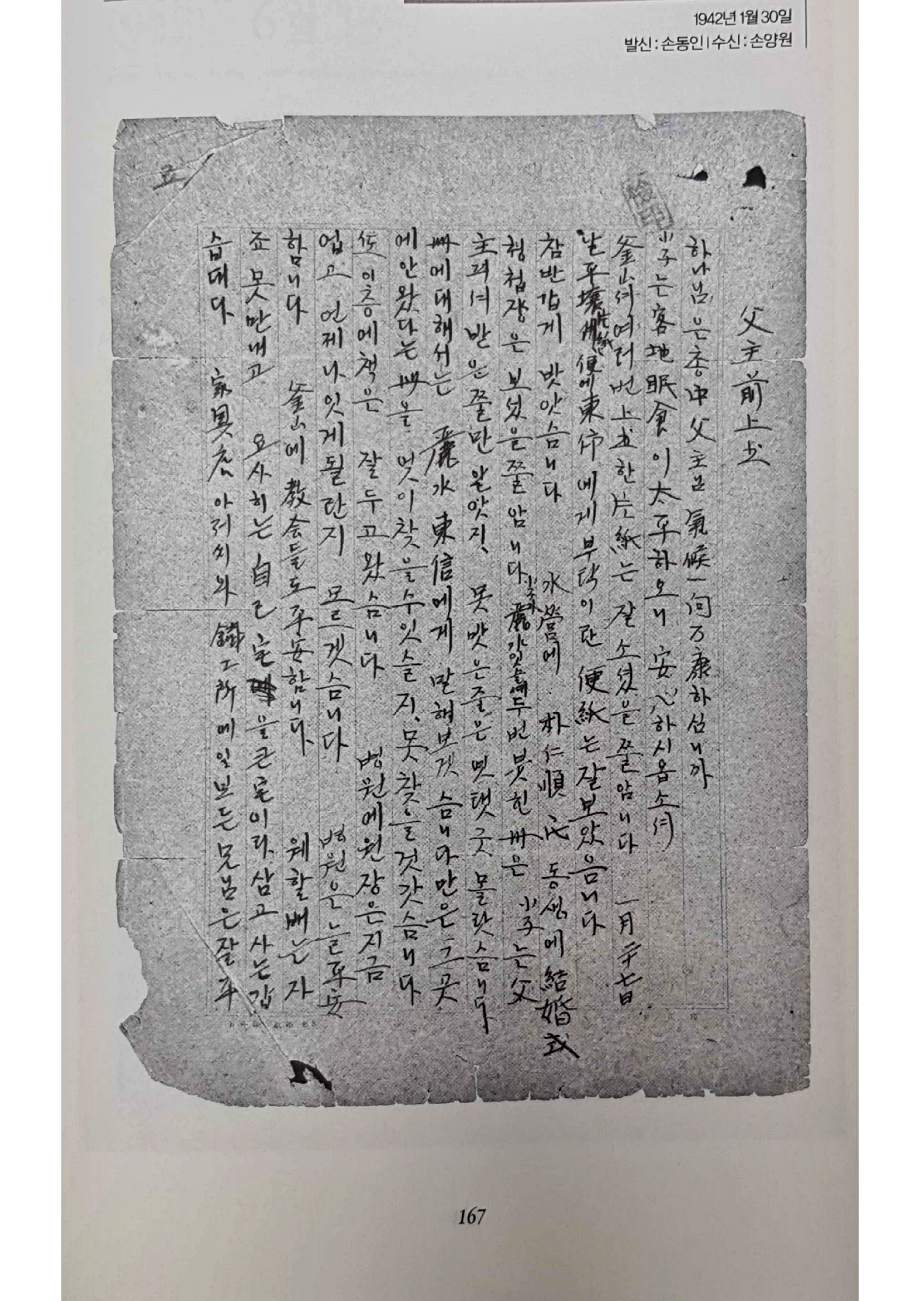 1942년 1월 30일
발신 : 손동인 | 수신 : 손양원
父主前上書
하나님 은총中 父主님 氣候一向万康하심니까
小子는 客地眠食이 太平하오니 安心하시옵소셔
釜山셔 여러번 上書한 片紙는 잘 소셨을쭐 암니다 一月二十七日
날 平壤 便에 東 에게 부탁이란 便紙는 잘보았음니다
참반갑게 밧앗슴니다 水營에 朴仁順 동생에 結婚式
청첩장은 보셨을쭐 암니다 두번붓힌 은 小子는 父
主끠셔 받은쭐만 알앗지 못밧은줄은 몰랏슴니다
에대해서는 麗水 東信에게 말해보겟슴니다만은 그곳
에안왔다는 을 엇이찾을수잇슬지 못찾을것갓슴니다
이층에책은 잘두고왔슴니다 병원에원장은지금
업고 언제나잇게될란지 몰겟슴니다 병원은늘平安
함니다 釜山에 教会들도平安함니다 웨할배는자
죠 못만내고 요사히는 自己 을큰 이라삼고 사는갑
습데다 家具店 아저씨와 鐵工所에일보든 님은잘푸
167